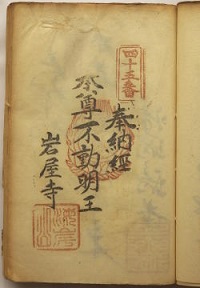 四十五番
奉納經
本尊不動明王
岩屋寺